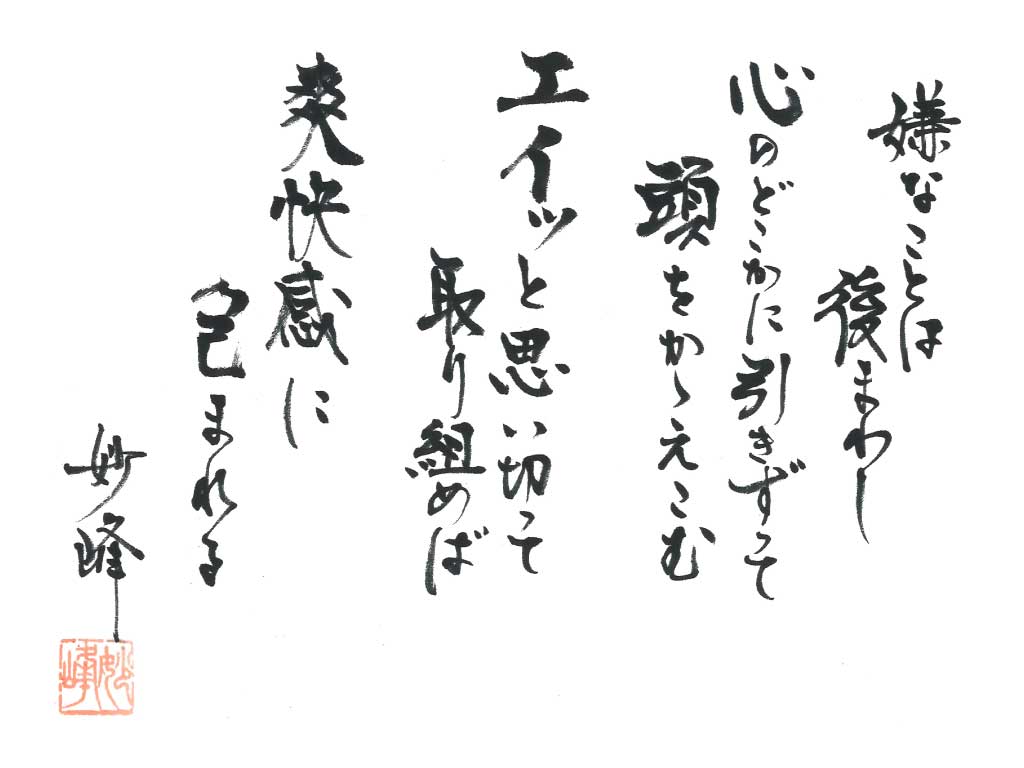 嫌なことは
後まわし
心のどこかに引きずって
頭をかゝえこむ
エイッと思い切って
取り組めば
爽快感に
包まれる
妙峰
妙峰